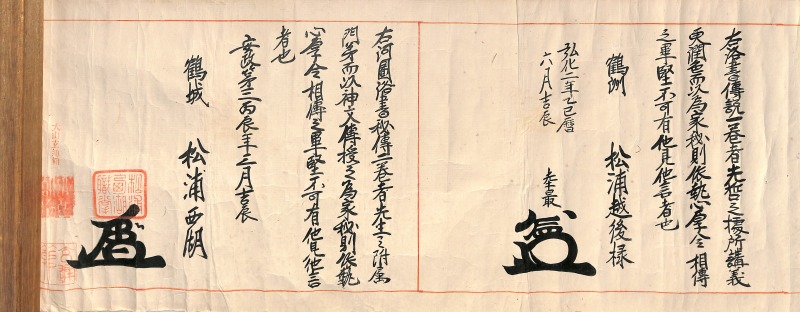 右洛書傳說一卷者先哲之擾所講義
更潤色而以為家秘則依執心厚令相傳
之畢堅不可有他見他言者也
鶴洲 松浦越後様
弘化二年乙巳暦
六月吉辰
右河圖洛書秘傳一卷者先生之附属
門弟而以神文傳授之為家秘則依執
心厚令相傳之畢堅不可有他見他言
者也
安政第三丙辰年三月吉辰
鶴城 松浦西湖